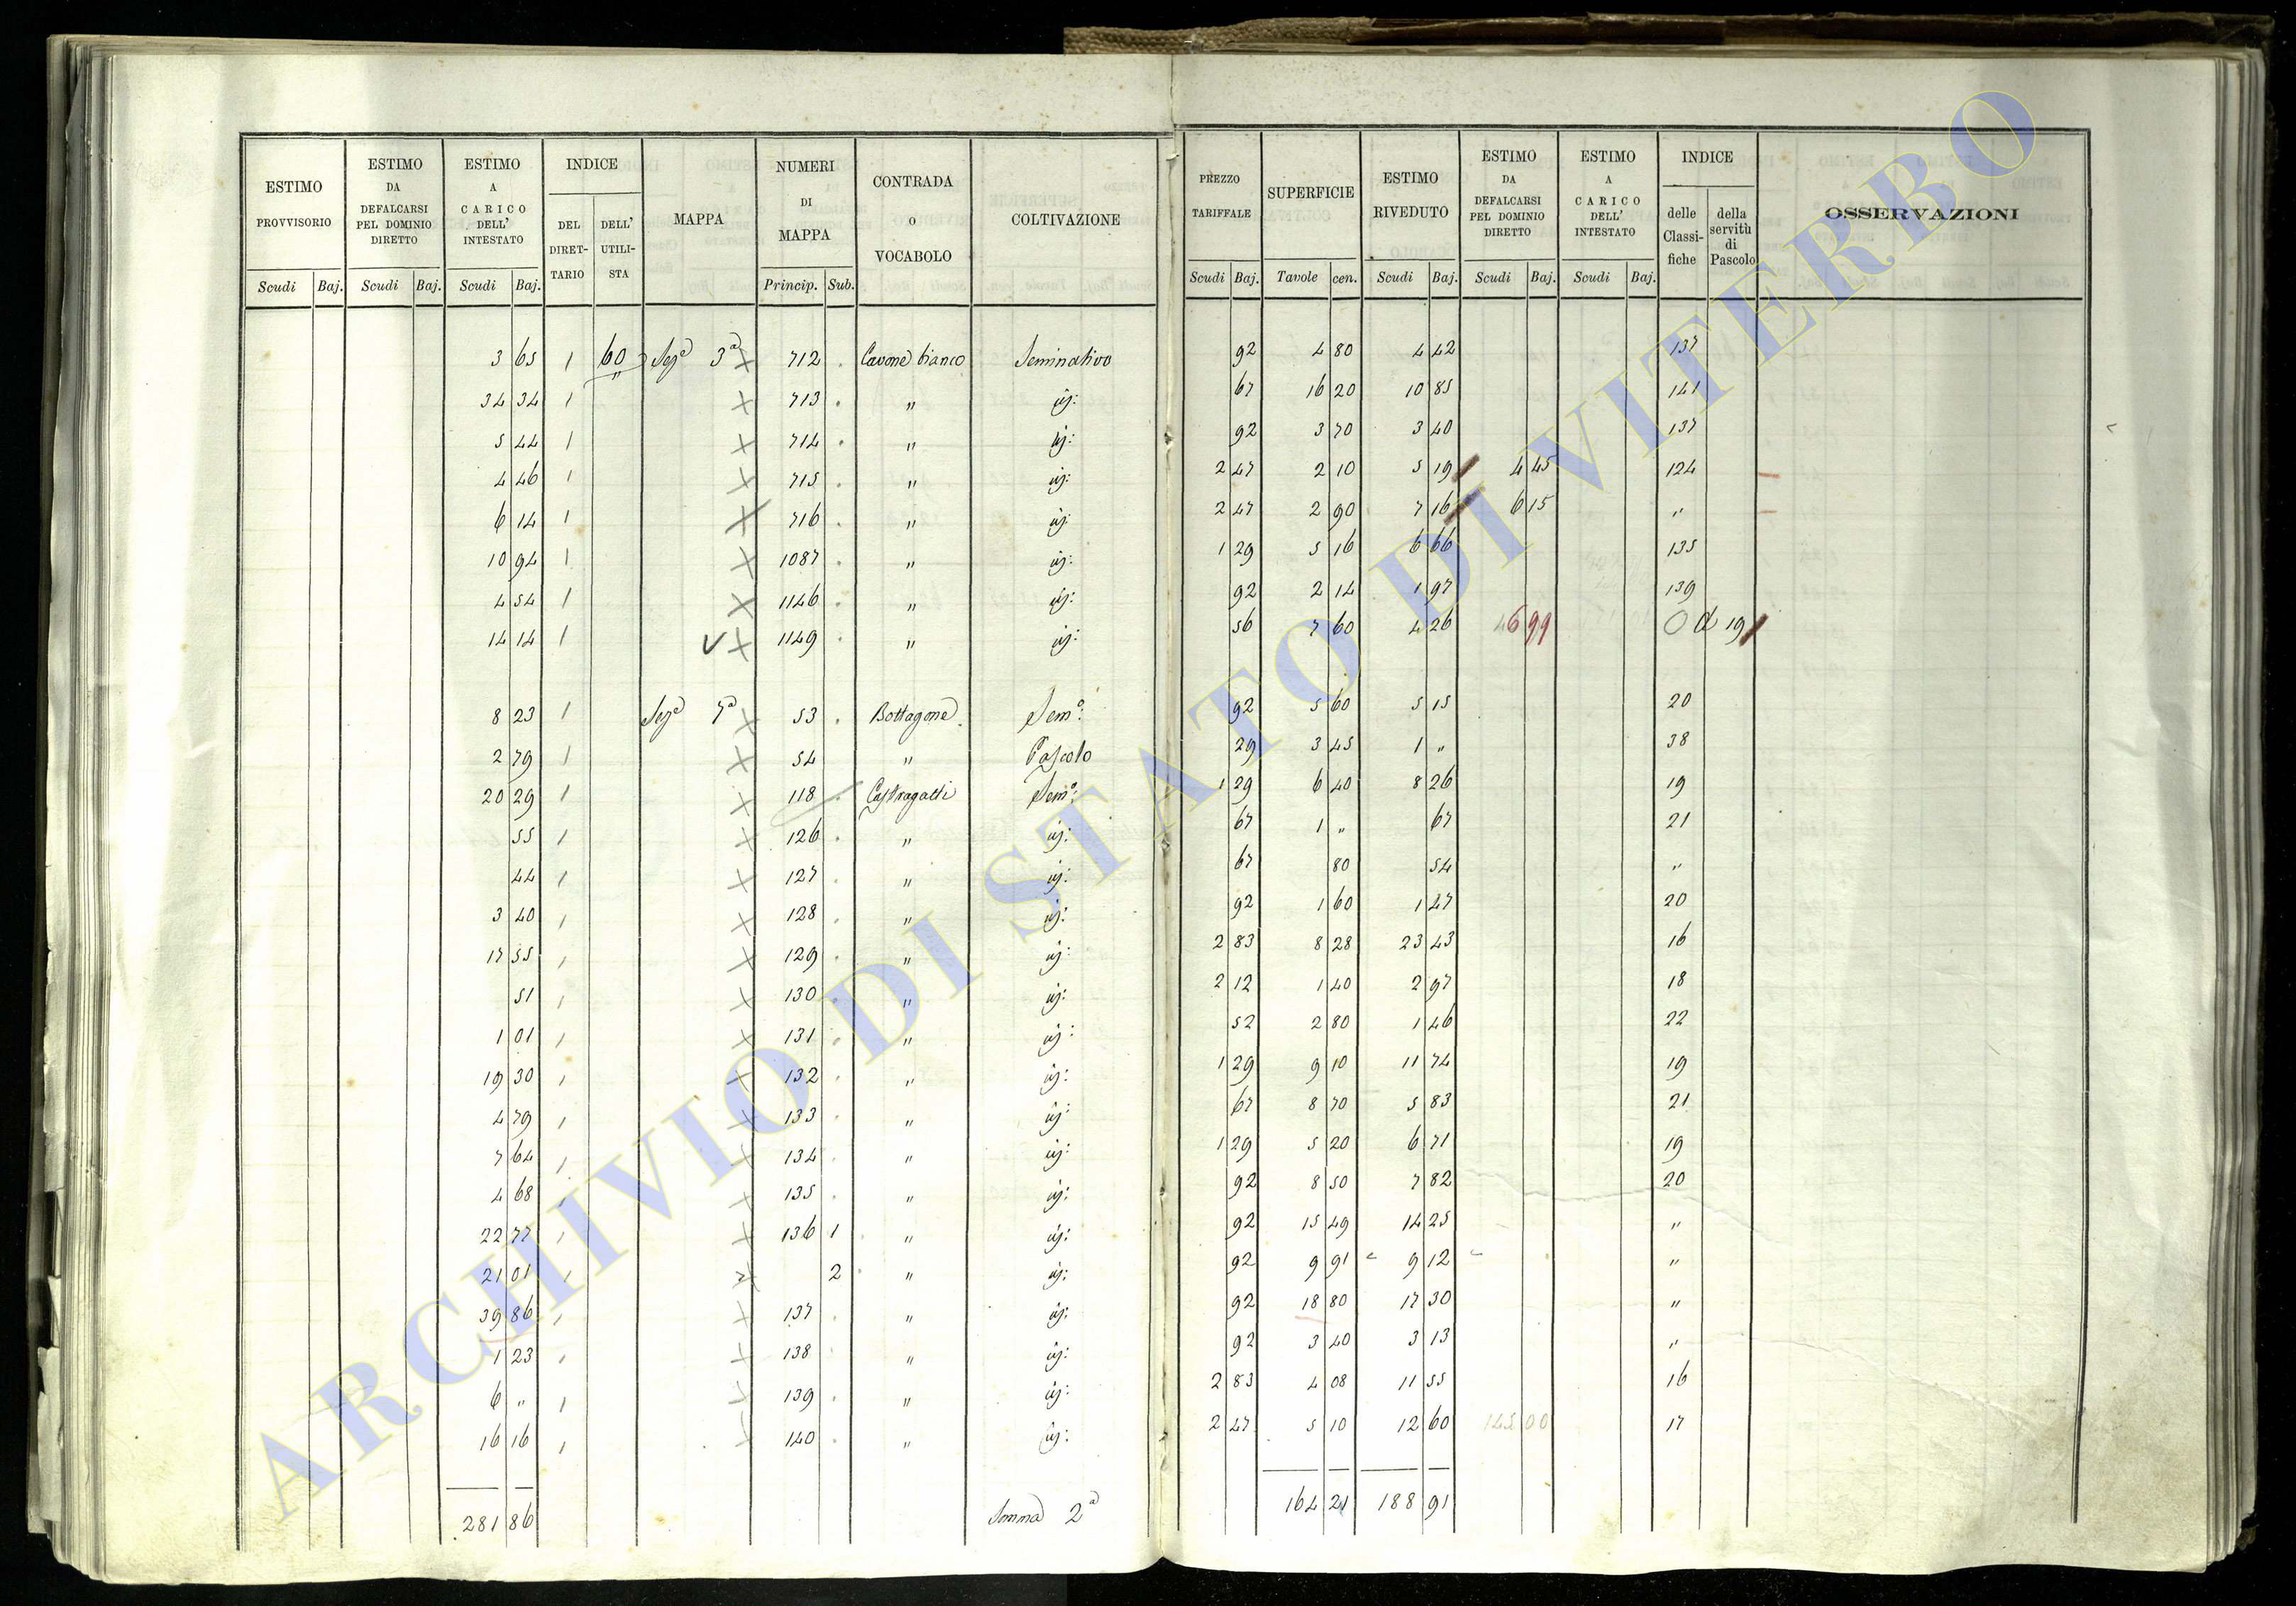 ESTIMO PROVVISORIO | ESTIMO DA DEFALCARSI PEL DOMINIO DIRETTO | ESTIMO A CARICO DELL' INTESTATO | INDICE DEL DIRET- TARIO | DELL' UTILI- STA | MAPPA | NUMERI DI MAPPA | CONTRADA o VOCABOLO | COLTIVAZIONE | PREZZO TARIFFALE | SUPERFICIE | ESTIMO RIVEDUTO | ESTIMO DA DEFALCARSI PEL DOMINIO DIRETTO | ESTIMO A CARICO DELL' INTESTATO | INDICE delle Classi- fiche | della servitù di Pascolo | OSSERVAZIONI
Scudi Baj. | Scudi Baj. | Scudi Baj. | Princip. Sub. | Scudi Baj. | Tavole cen. | Scudi Baj. | Scudi Baj. | Scudi Baj.
3 65 1 60 Sezª 3ª × 712 Cavone bianco Seminativo 92 4 80 4 42 137
34 34 1 × 713 " id: 67 16 20 10 85 141
5 44 1 × 714 " id: 92 3 70 3 40 137
4 46 1 × 715 " id: 2 47 2 10 5 19 4 45 124
6 14 1 × 716 " id: 2 47 2 90 7 16 6 15 "
10 94 1 × 1087 " id: 1 29 5 16 6 66 135
4 54 1 × 1146 " id: 92 2 14 1 97 139
14 14 1 × 1149 " id: 56 7 60 4 26 46 99 d 19
8 23 1 Sezª 7ª × 53 Bottagone Semº: 92 5 60 5 15 20
2 79 1 × 54 " Pascolo 29 3 45 1 " 38
20 29 1 × 118 Castragatti Semº: 1 29 6 40 8 26 19
55 1 × 126 " id: 67 1 " 67 21
44 1 × 127 " id: 67 80 54 "
3 40 1 × 128 " id: 92 1 60 1 47 20
17 55 1 × 129 " id: 2 83 8 28 23 43 16
51 1 × 130 " id: 2 12 1 40 2 97 18
1 01 1 × 131 " id: 52 2 80 1 46 22
19 30 1 × 132 " id: 1 29 9 10 11 74 19
4 79 1 × 133 " id: 67 8 70 5 83 21
7 64 1 × 134 " id: 1 29 5 20 6 71 19
4 68 1 × 135 " id: 92 8 50 7 82 20
22 77 1 × 136 1 " id: 92 15 49 14 25 "
21 01 1 × 2 " id: 92 9 91 9 12 "
39 86 1 × 137 " id: 92 18 80 17 30 "
1 23 1 × 138 " id: 92 3 40 3 13 "
6 " 1 × 139 " id: 2 83 4 08 11 55 16
16 16 1 × 140 " id: 2 47 5 10 12 60 145 00 17
281 86 Somma 2ª 164 21 188 91
ARCHIVIO DI STATO DI VITERBO